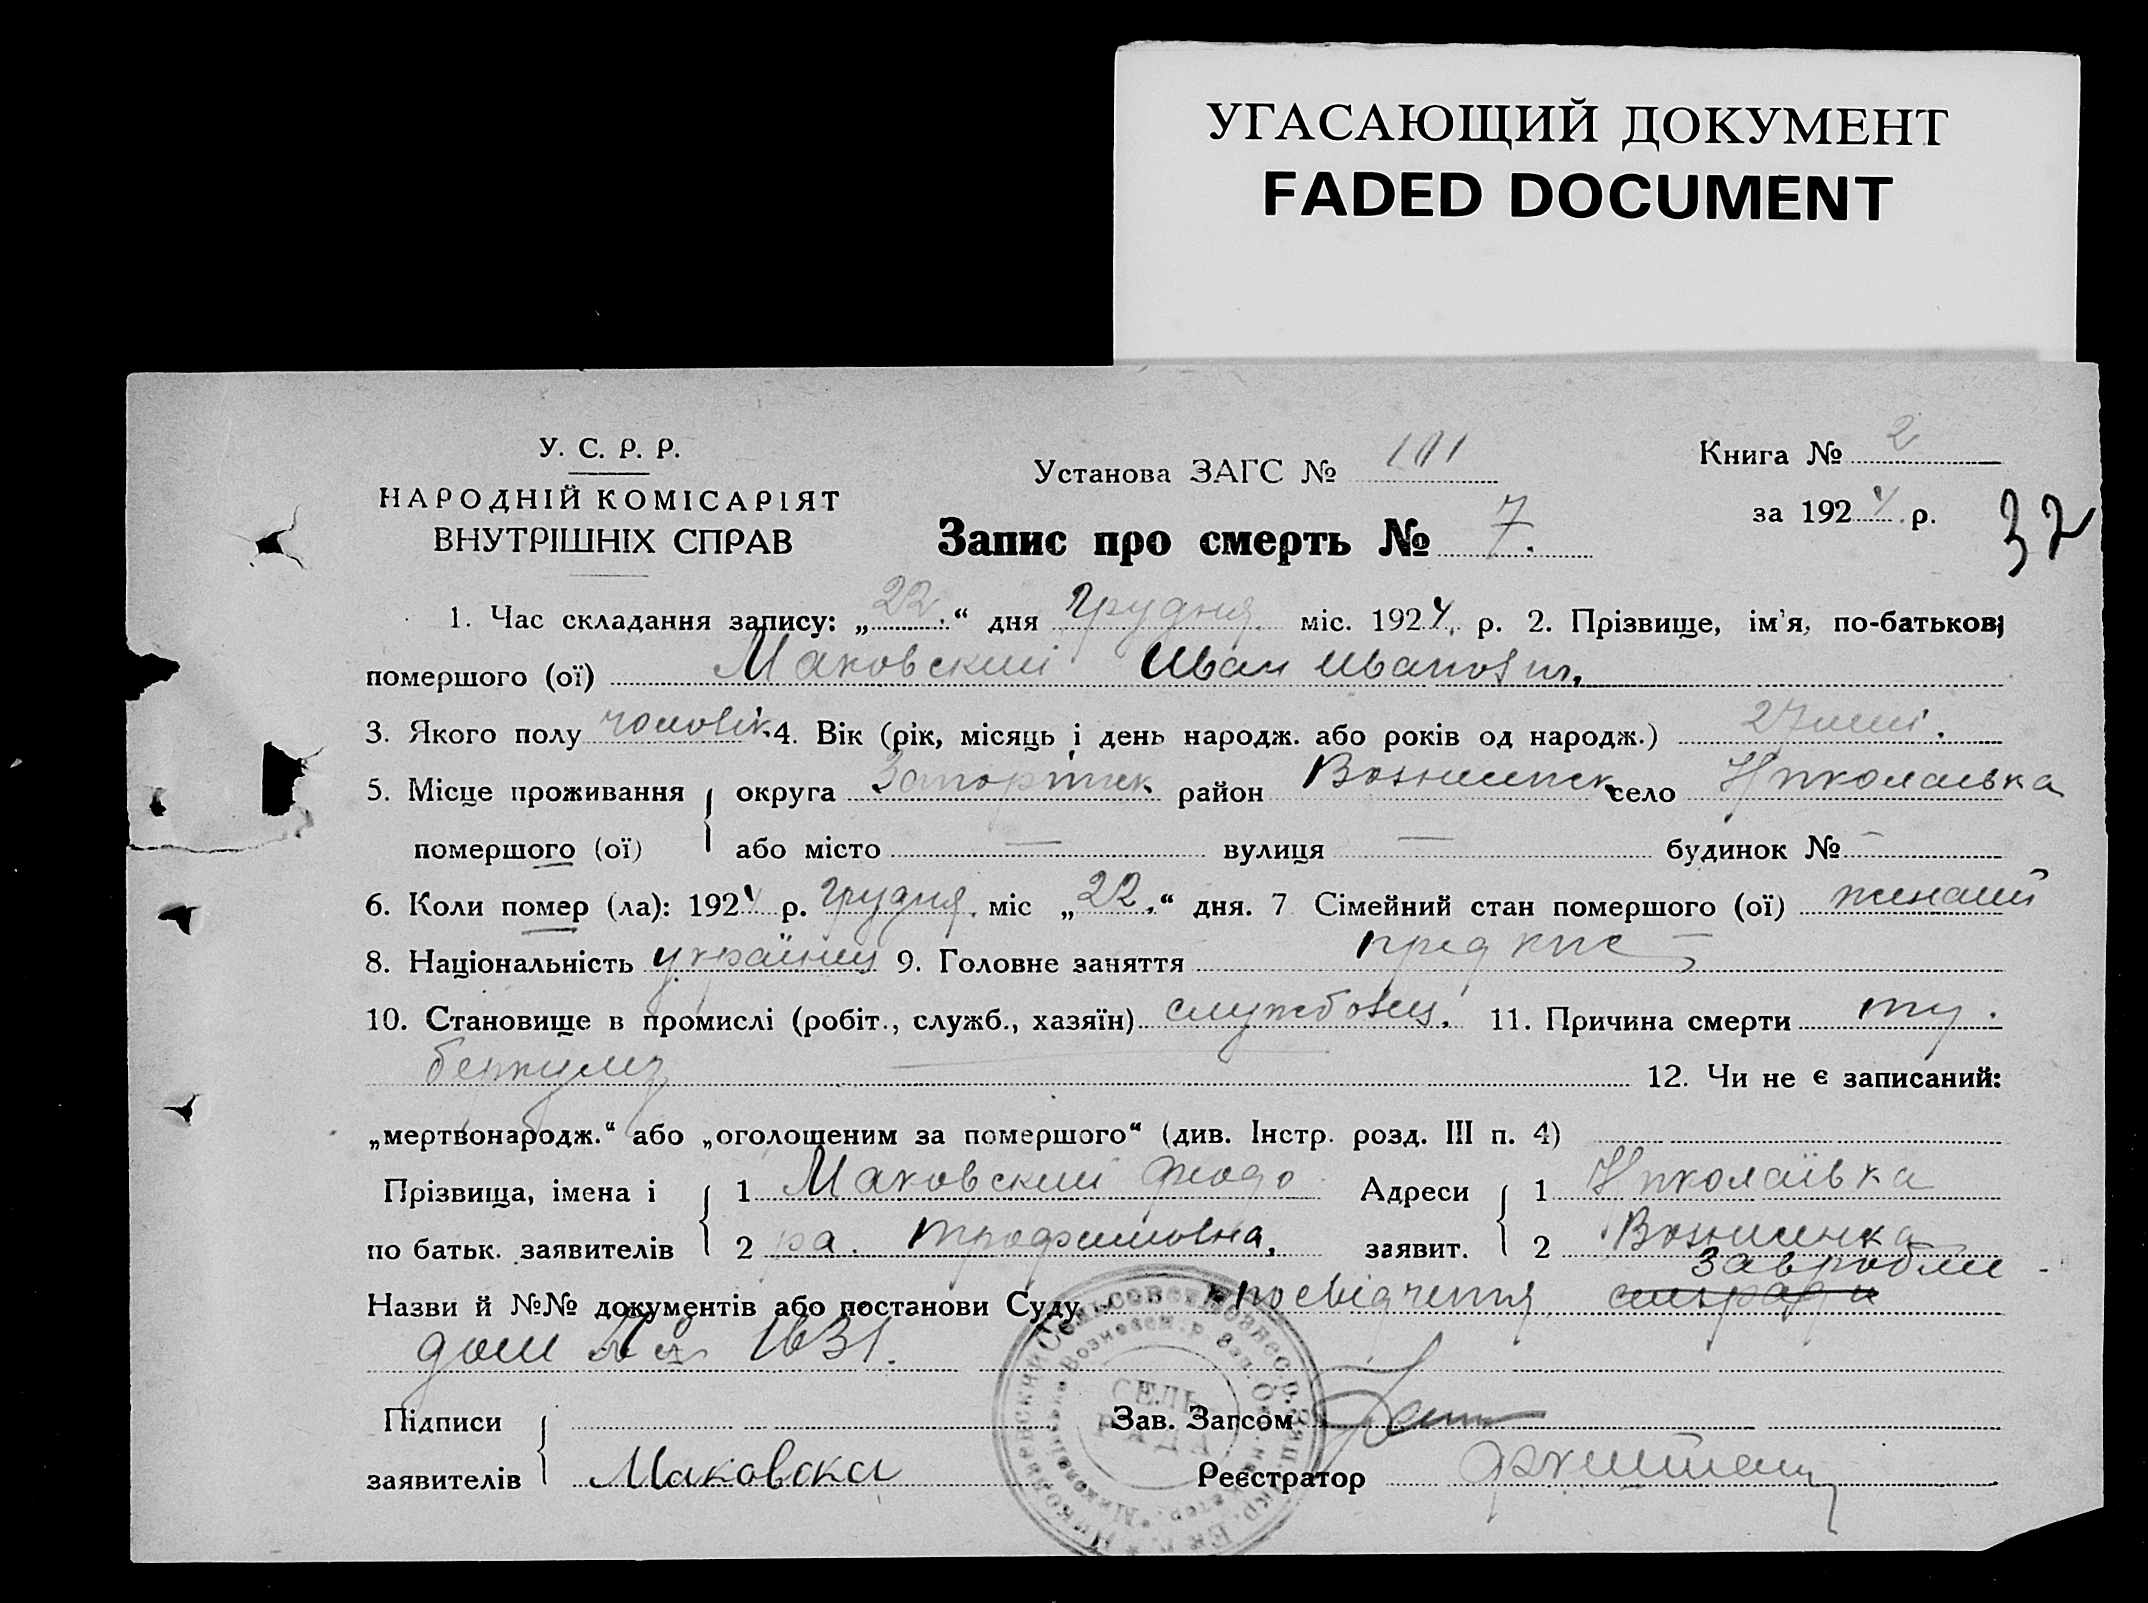 УГАСАЮЩИЙ ДОКУМЕНТ
FADED DOCUMENT
У. С. Р. Р.
НАРОДНІЙ КОМІСАРІЯТ
ВНУТРІШНІХ СПРАВ
Установа ЗАГС № 101
Книга № 2
за 1924 р.
32
Запис про смерть № 7.
1. Час складання запису: „22.“ дня Грудня міс. 1924. р. 2. Прізвище, ім'я, по-батькові
помершого (ої) Маковский Иван Иванович.
3. Якого полу чоловік 4. Вік (рік, місяць і день народж. або років од народж.) 27
5. Місце проживання помершого (ої) округа район село Николаївка
або місто — вулиця — будинок № —
6. Коли помер (ла): 1924 р. Грудня міс „22.“ дня. 7 Сімейний стан помершого (ої)
8. Національність українец 9. Головне заняття пред
10. Становище в промислі (робіт., служб., хазяїн) службовец. 11. Причина смерти ту.
беркулез 12. Чи не є записаний:
„мертвонародж.“ або „оголошеним за помершого“ (див. Інстр. розд. III п. 4)
Прізвища, імена і по батьк. заявителів 1 Маковский Фиодо
2 ра. Трофимовна.
Адреси заявит. 1 Николаївка
2
Назви й №№ документів або постанови Суду посвідчення
№ 1631.
Підписи заявителів Маковска
Зав. Загсом
Реєстратор
СЕЛЬ
РАДА